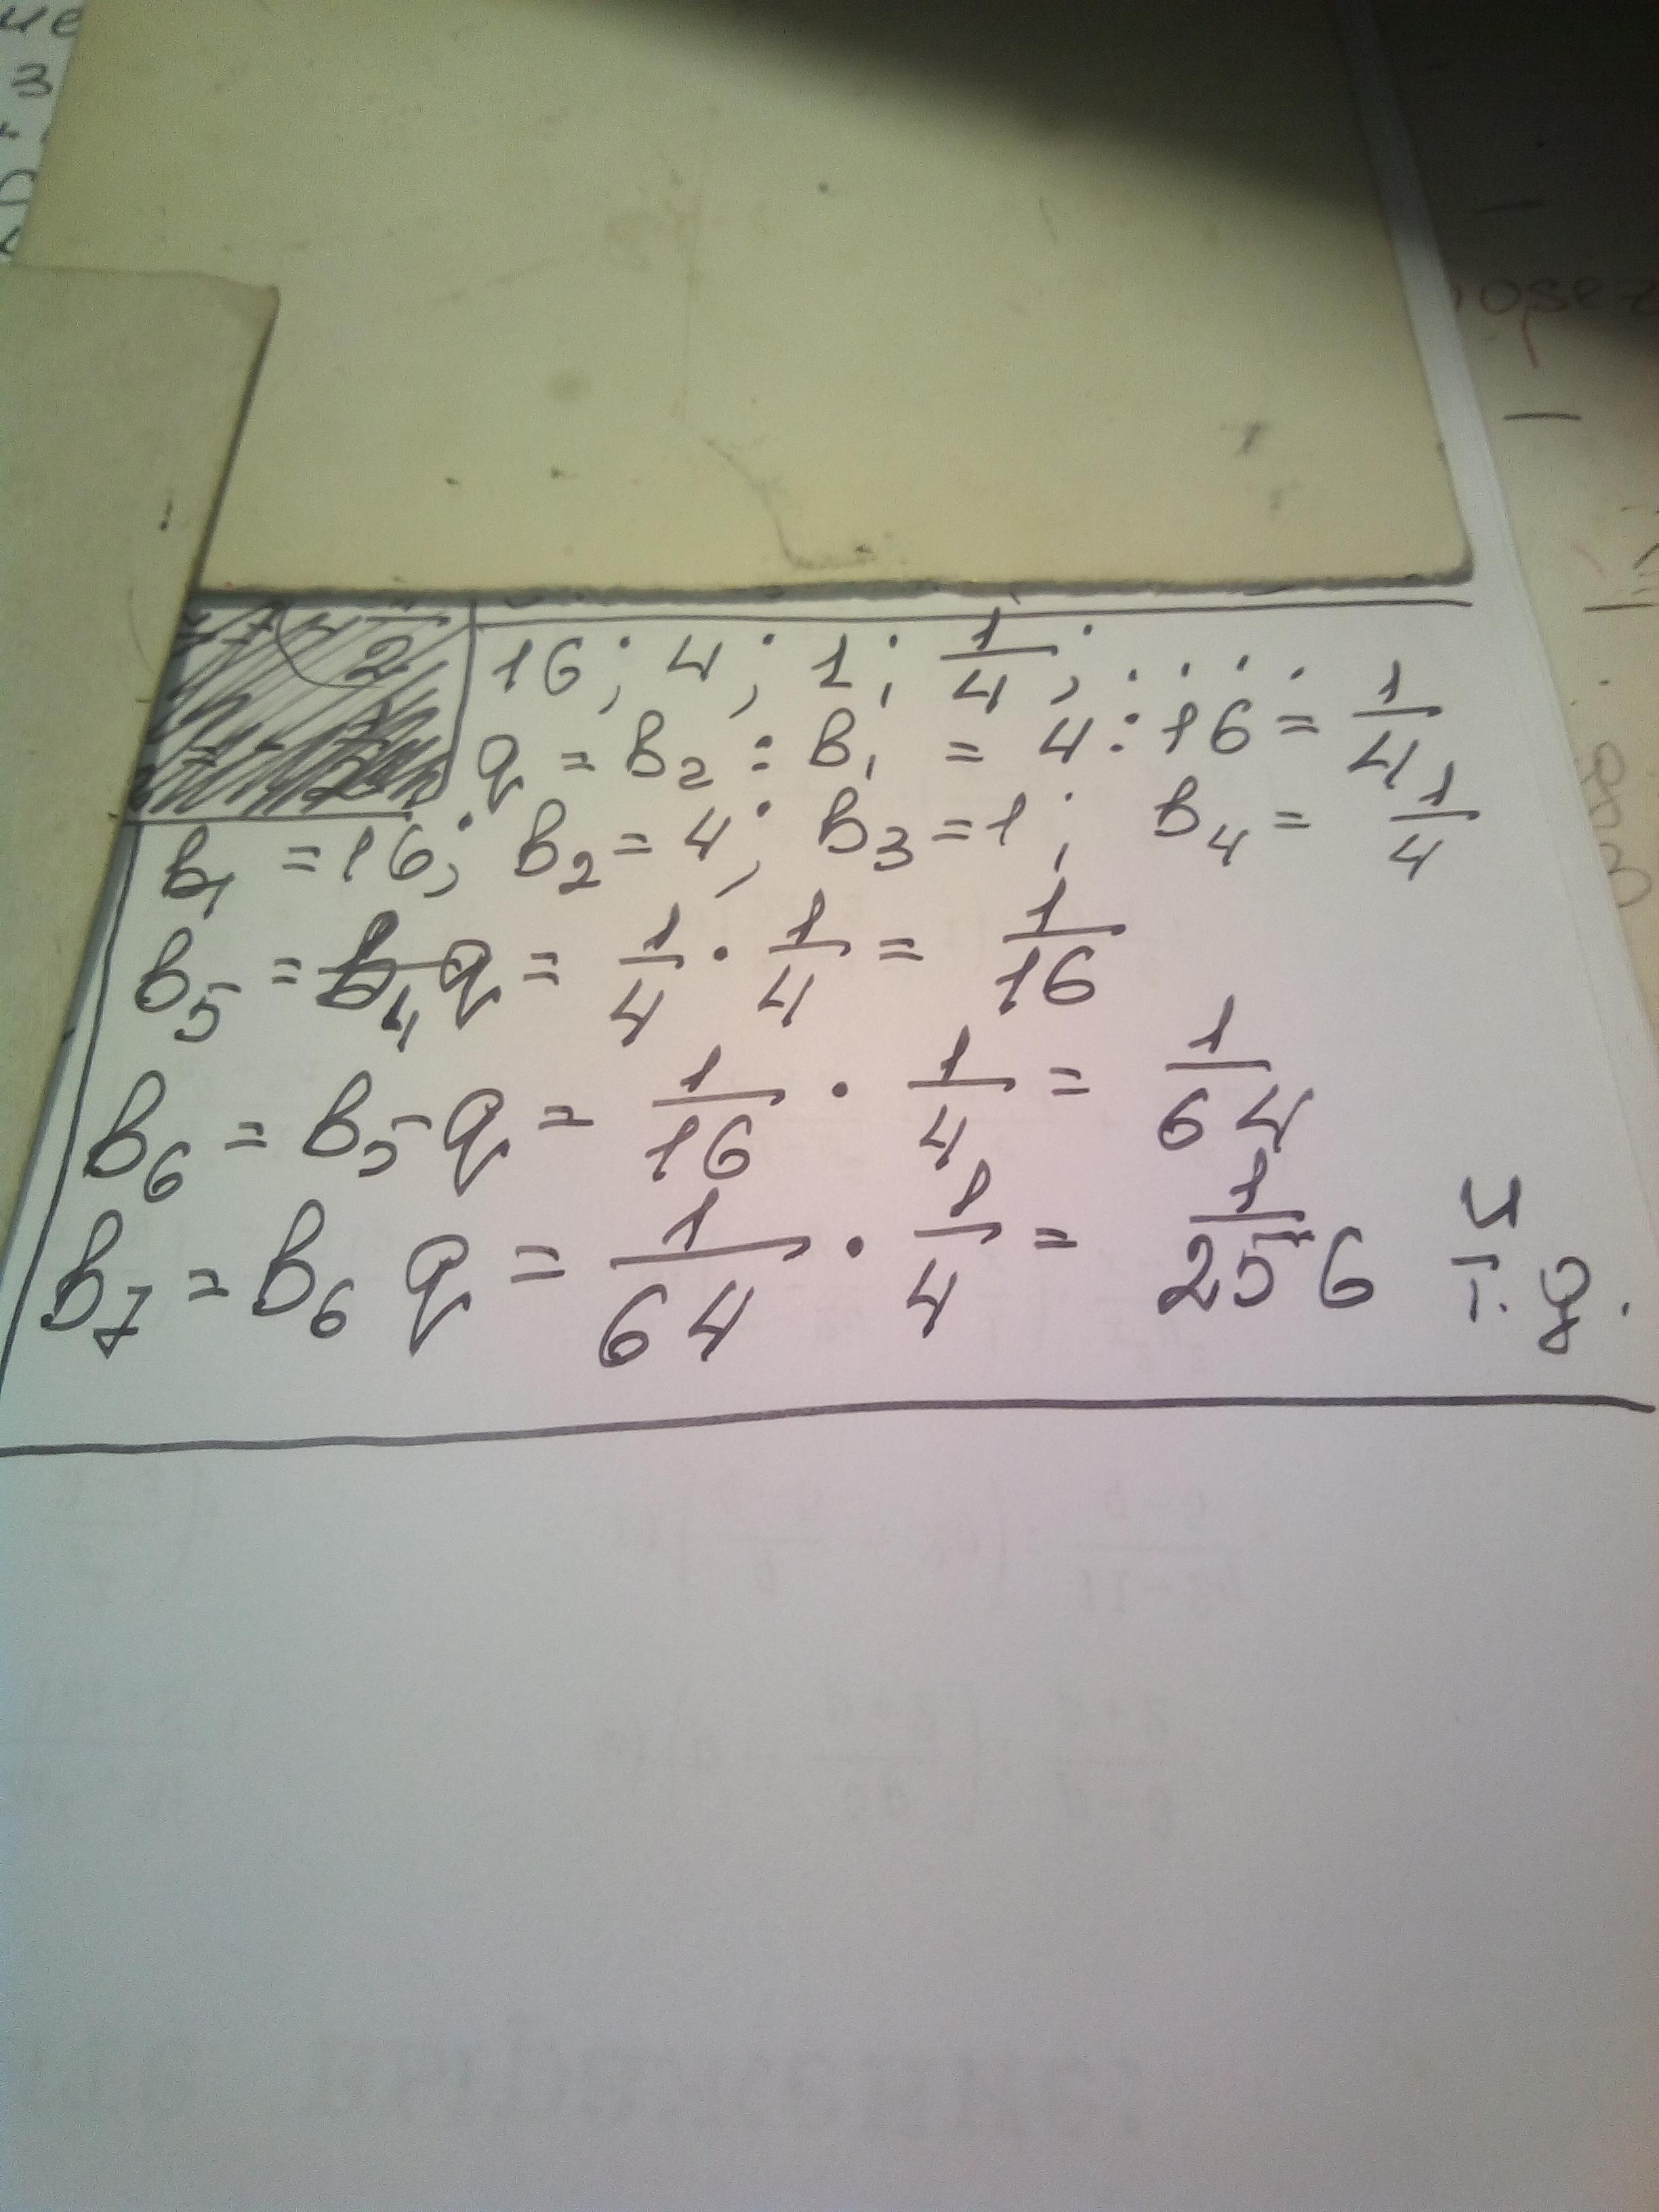 16; 4; 1; 1/4; ....
q = b₂ : b₁ = 4 : 16 = 1/4
b₁ = 16; b₂ = 4; b₃ = 1; b₄ = 1/4
b₅ = b₄q = 1/4 · 1/4 = 1/16
b₆ = b₅q = 1/16 · 1/4 = 1/64
b₇ = b₆q = 1/64 · 1/4 = 1/256 и т.д.